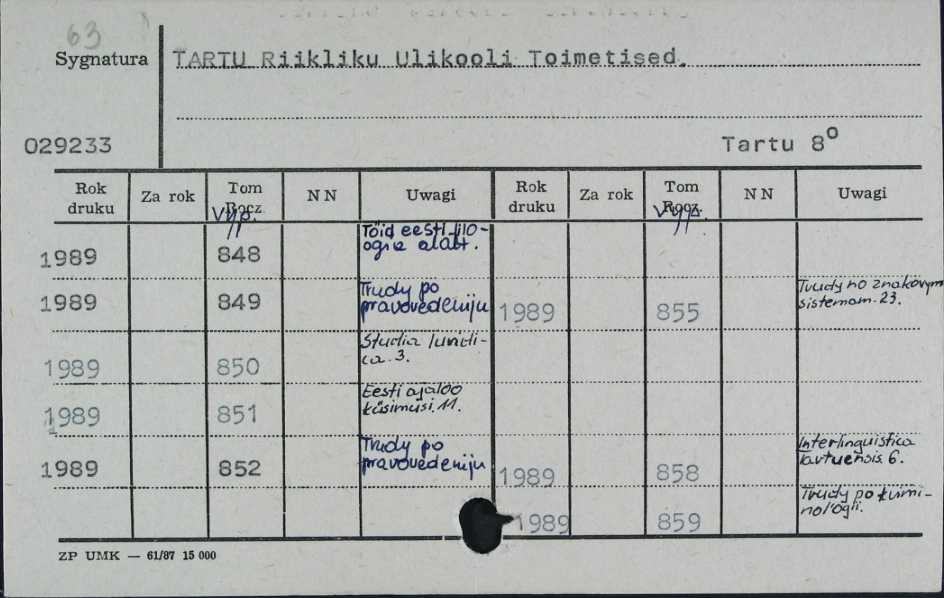 63
Sygnatura TARTU Riikliku Ulikooli Toimetised.
029233 Tartu 8°
Rok druku Za rok Tom Rocz. NN Uwagi Rok druku Za rok Tom Rocz. NN Uwagi
Vyp. Vyp.
1989 848 Töid eesti filo-
ogia alalt.
1989 849 Trudy po
pravovedeniju
1989 855 Trudy po znakovym
sistemam. 23.
1989 850 Studia luridi-
ca. 3.
1989 851 Eesti ajaloo
küsimusi. 11.
1989 852 Trudy po
pravovedeniju
1989 858 Interlinguistica
tartuensis. 6.
1989 859 Trudy po krimi-
nologii.
ZP UMK — 61/87 15 000